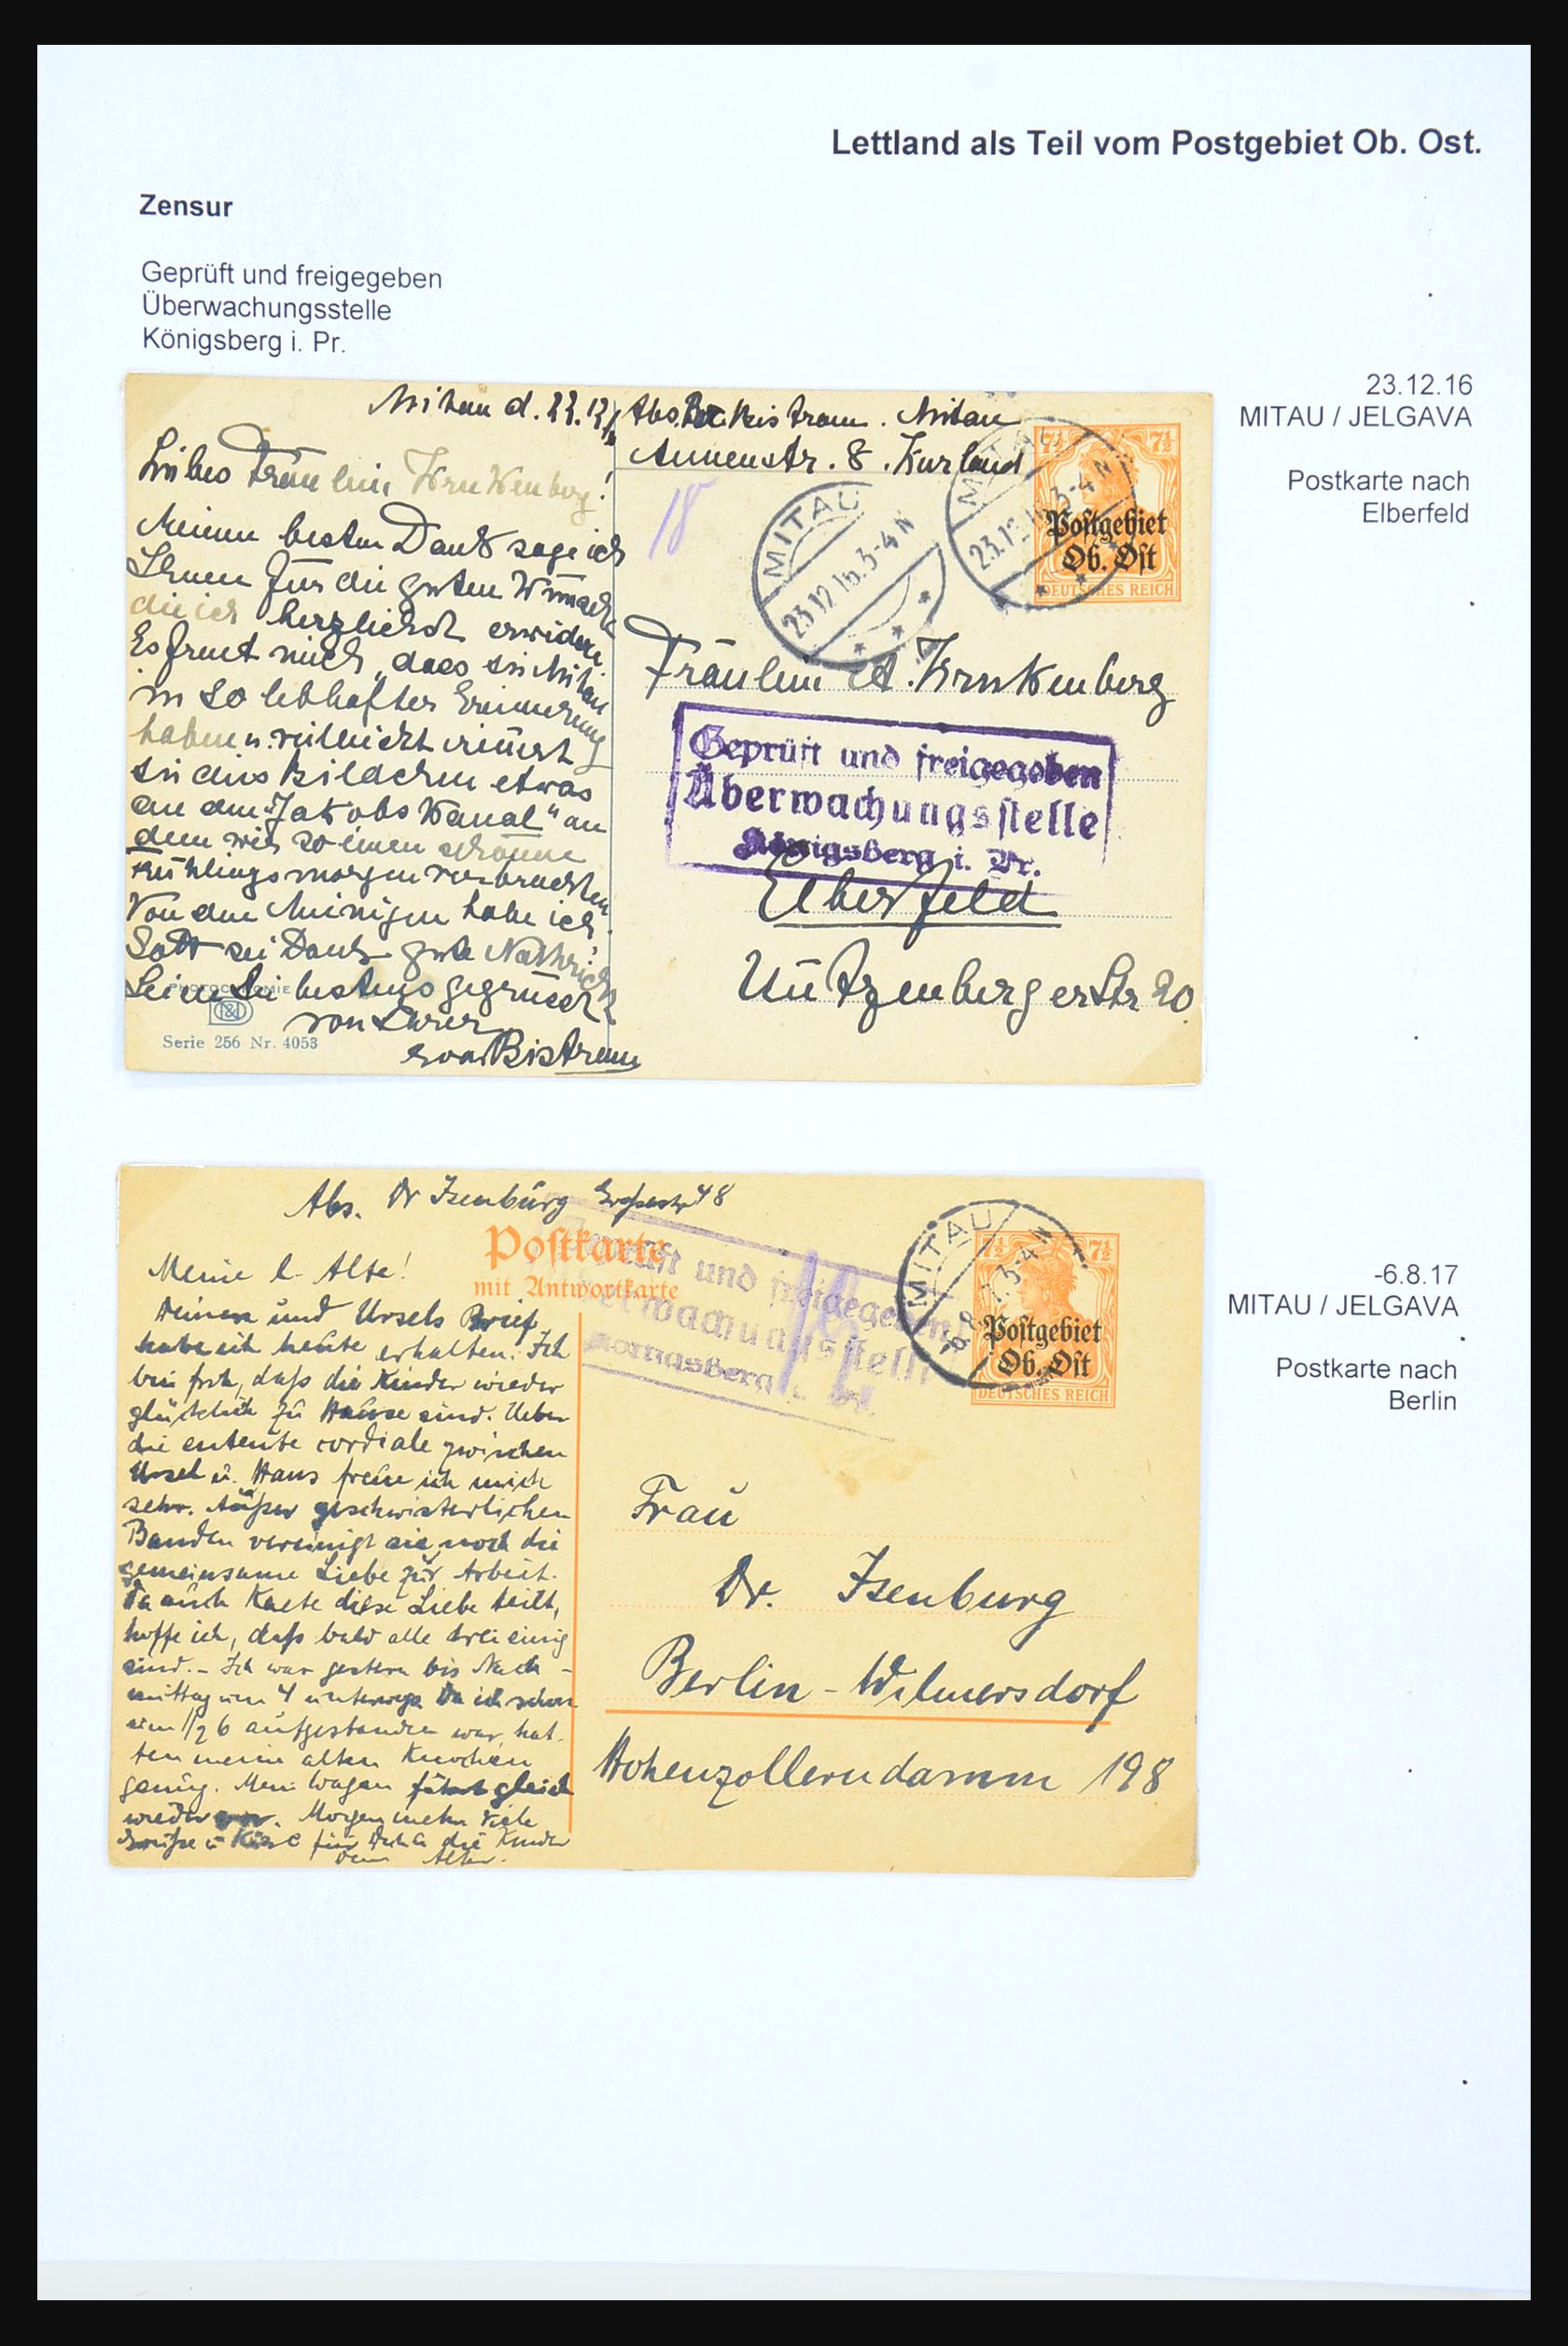 Lettland als Teil vom Postgebiet Ob. Ost.
Zensur
Geprüft und freigegeben
Überwachungsstelle
Königsberg i. Pr.
23.12.16
MITAU / JELGAVA
Postkarte nach
Elberfeld
Mitau d. 22.12
Liebes Fräulein Krukenberg!
Meinen besten Dank sage ich
Ihnen für die guten Wünsche
die ich herzlichst erwidere.
Es freut mich, dass sie Mitau
in so lebhafter Erinnerung
haben u. vielleicht erinnert
sie dies Bildchen etwas
an den "Jakobs Kanal" an
dem wir so einen schönen
Frühlingsmorgen verbrachten.
Von den Meinigen habe ich
Gott sei Dank gute Nachricht
Seien Sie bestens gegrüsst
von Ihrer
Bistram
PHOTOCHROMIE
Serie 256 Nr. 4053
Abs. Bistram. Mitau
Annenstr. 8. Kurland
18
MITAU
23.12.16.3-4 N
MITAU
23.12.16.3-4 N
7½ 7½
Postgebiet
Ob. Ost
DEUTSCHES REICH
Fräulein A. Krukenberg
Geprüft und freigegeben
Überwachungsstelle
Königsberg i. Pr.
Elberfeld
Nützenbergerstr 20
-6.8.17
MITAU / JELGAVA
Postkarte nach
Berlin
Abs. Dr Isenburg 48
Postkarte
mit Antwortkarte
Geprüft und freigegeben
Überwachungsstelle
Königsberg i. Pr.
MITAU
-6.8.17.3-4 N
7½ 7½
Postgebiet
Ob. Ost
DEUTSCHES REICH
Meine l. Alte!
Deinen und Ursels Brief
habe ich heute erhalten. Ich
bin froh, daß die Kinder wieder
glücklich zu Hause sind. Ueber
die entente cordiale zwischen
Ursel u. Hans freue ich mich
sehr. Außer geschwisterlichen
Banden vereinigt sie noch die
gemeinsame Liebe zur Arbeit.
Da auch Kaete diese Liebe teilt,
hoffe ich, daß bald alle drei einig
sind. - Ich war gestern bis Nach-
mittag um 4 unterwegs. Da ich schon
um 1/2 6 aufgestanden war, hat-
ten meine alten Knochen
genug. Mein Wagen fährt gleich
wieder vor. Morgen mehr. Viele
Grüße u. Küsse für Dich u. die Kinder
Dein Alter.
Frau
Dr. Isenburg
Berlin - Wilmersdorf
Hohenzollerndamm 198